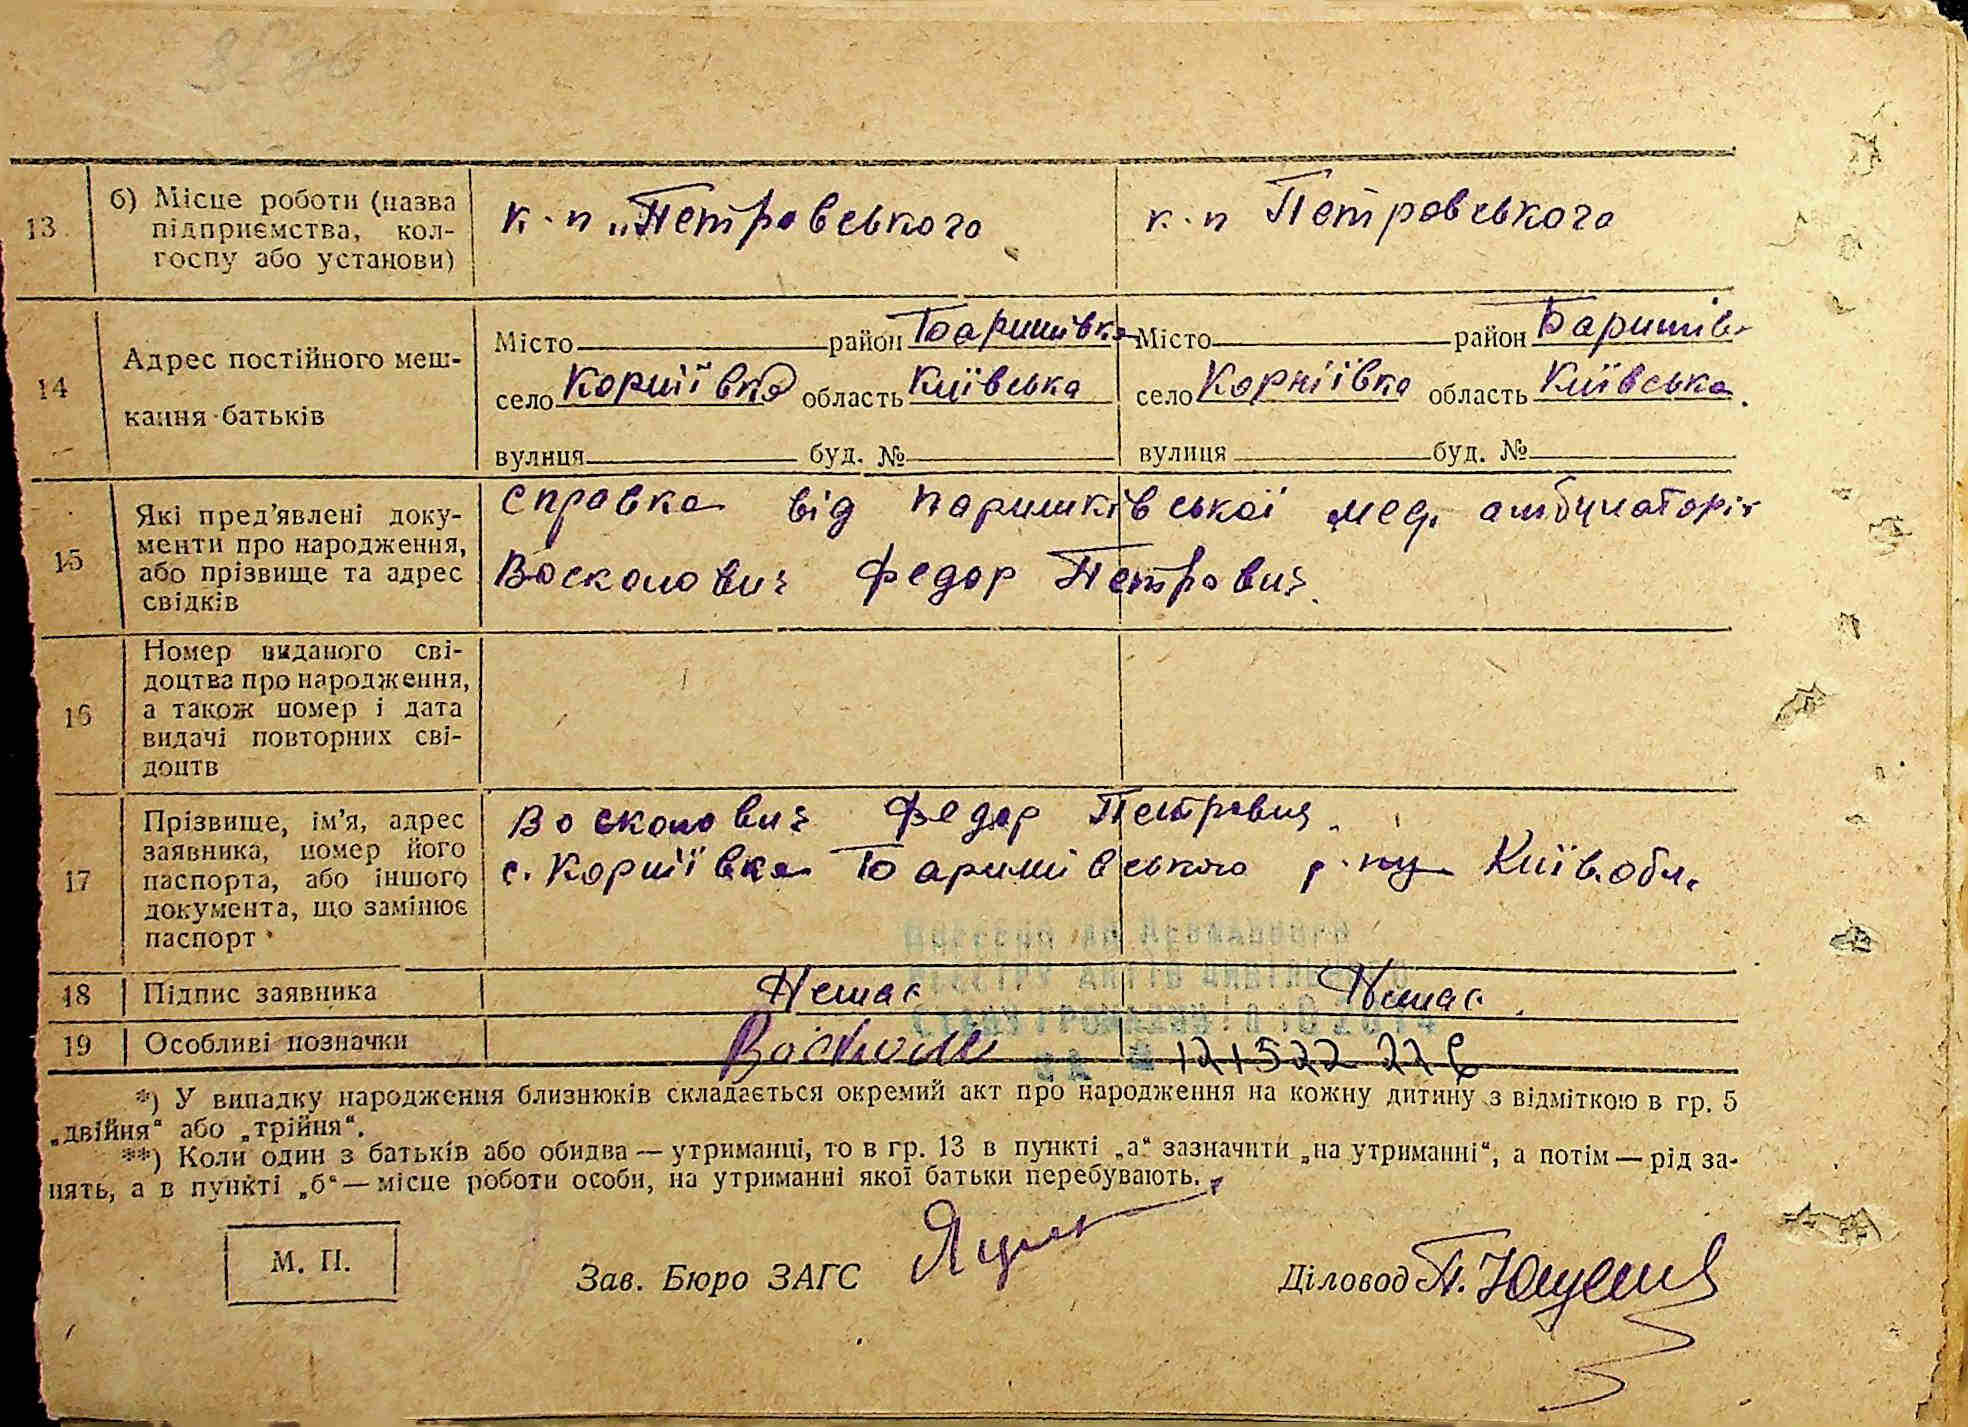 13
б) Місце роботи (назва
підприємства, кол-
госпу або установи)
к. п „Петровського
к. п Петровського
14
Адрес постійного меш-
кання батьків
Місто район Баришівка
село Корніївка область Київська
вулиця буд. №
Місто район Баришів-
село Корніївка область Київська.
вулиця буд. №
15
Які пред’явлені доку-
менти про народження,
або прізвище та адрес
свідків
Справка від Паришківської мед. амбулаторії
Восколович Федор Петрович.
16
Номер виданого сві-
доцтва про народження,
а також номер і дата
видачі повторних сві-
доцтв
17
Прізвище, ім’я, адрес
заявника, номер його
паспорта, або іншого
документа, що замінює
паспорт
Восколович Федор Петрович.
с. Корніївка Баришівського р-ну Київ. обл.
Внесено до Державного
реєстру актів цивільного
стану громадян
18
Підпис заявника
Немає Немає.
19
Особливі позначки
*) У випадку народження близнюків складається окремий акт про народження на кожну дитину з відміткою в гр. 5
„двійня“ або „трійня“.
**) Коли один з батьків або обидва — утриманці, то в гр. 13 в пункті „а“ зазначити „на утриманні“, а потім — рід за-
нять, а в пункті „б“ — місце роботи особи, на утриманні якої батьки перебувають.
М. П.
Зав. Бюро ЗАГС
Діловод